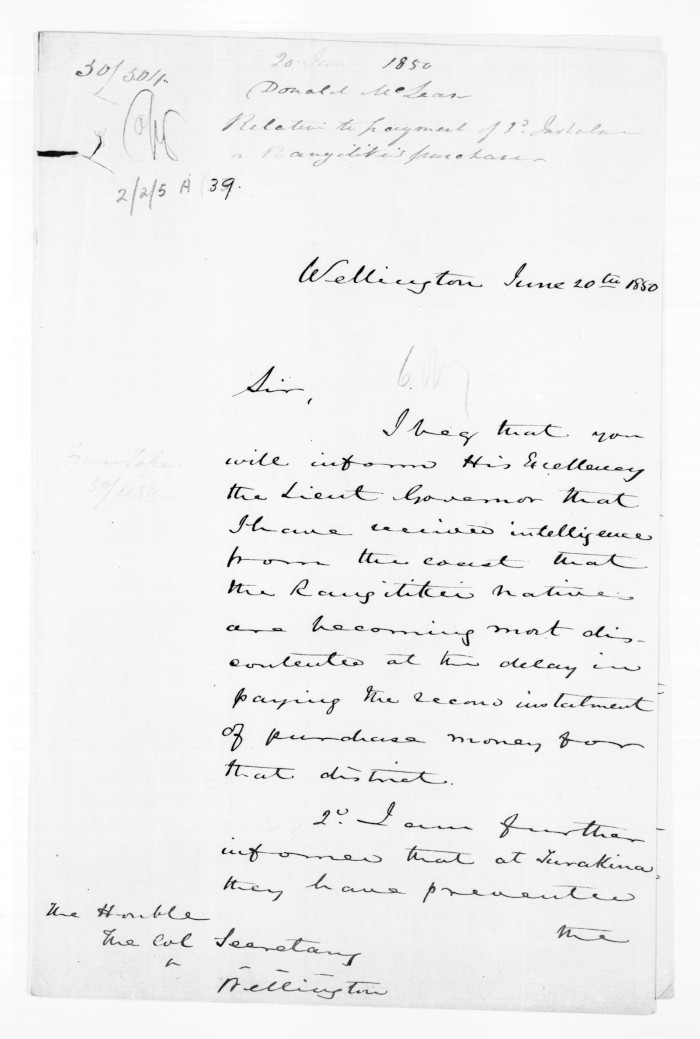 50/504.
20 June 1850
Donald McLean
Relative to payment of 2d. Instalm
on Rangitikei purchase
2/2/5 A (39.
Wellington June 20th 1850
Sir,
I beg that you
will inform His Excellency
the Lieut Governor that
I have received intelligence
from the coast that
the Rangitikei natives
are becoming most dis-
contented at the delay in
paying the second instalment
of purchase money for
that district.
2d. I am further
informed that at Turakina,
they have prevented
the
The Honble
The Col Secretary
Wellington